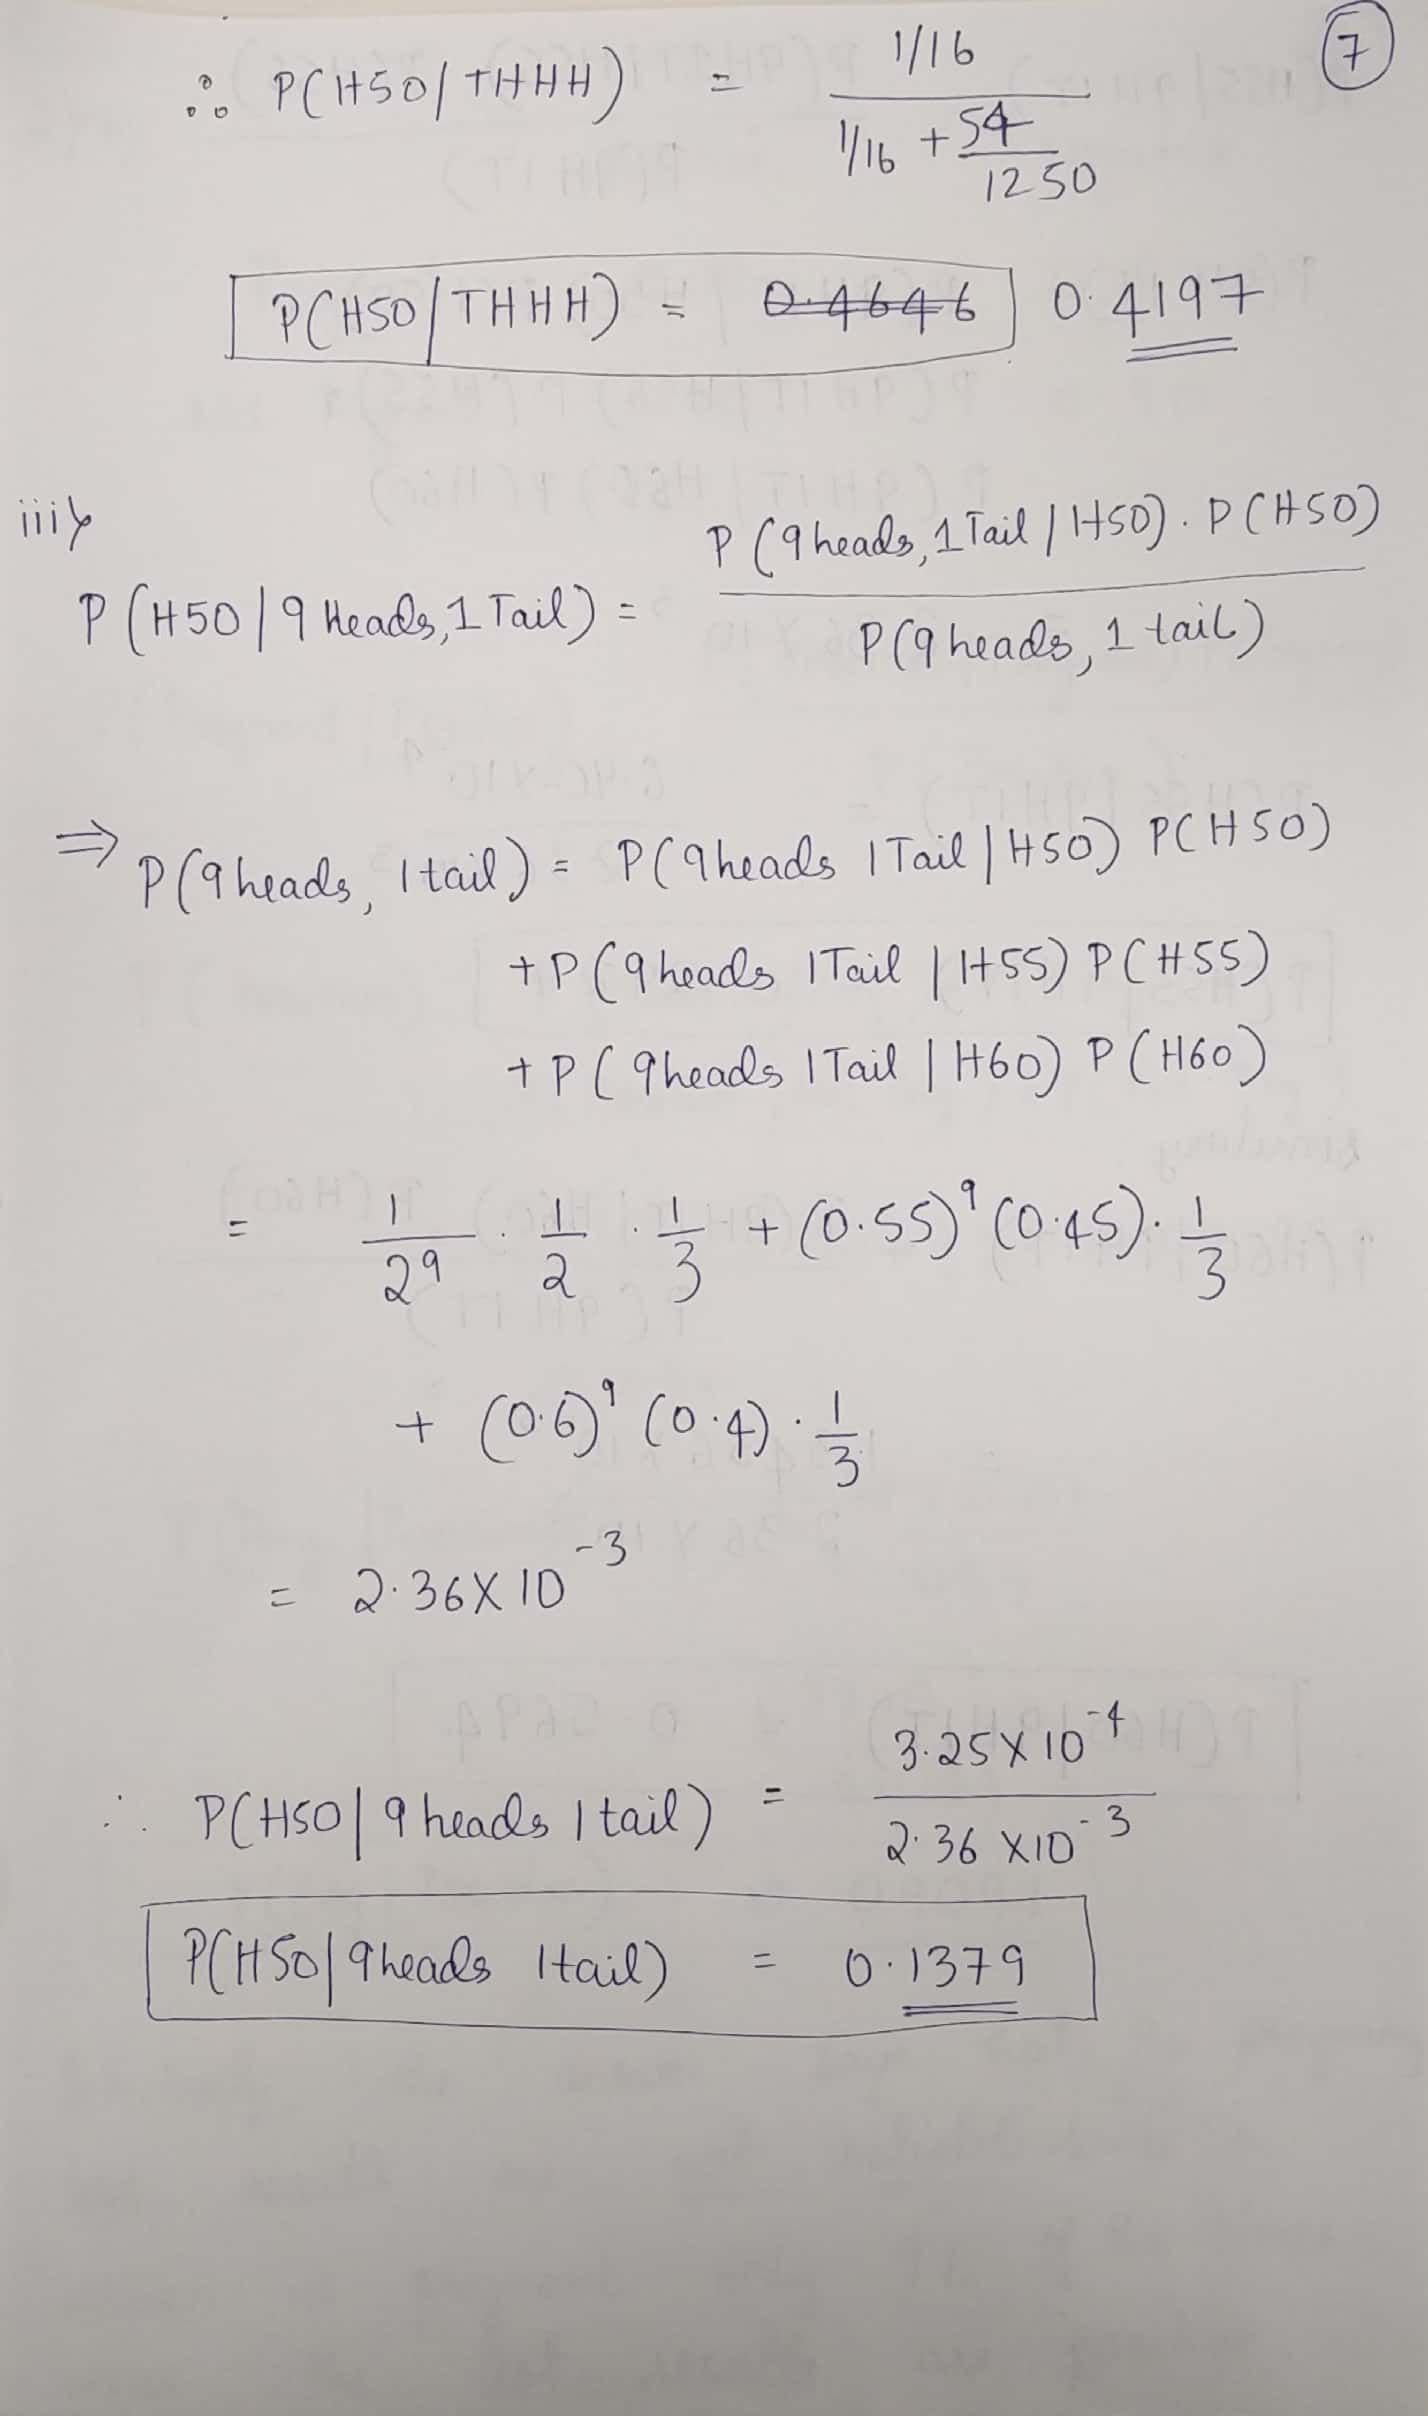 7
∴ P(H50/THHH) = 1/16 / (1/16 + 54/1250)
P(H50/THHH) = 0.4646 0.4197
iiiy
P(H50/9 Heads,1 Tail) = P(9heads,1Tail/H50).P(H50) / P(9heads, 1 tail)
⇒ P(9heads, 1tail) = P(9heads 1Tail/H50) P(H50)
+P(9heads 1Tail/H55) P(H55)
+P(9heads 1Tail/H60) P(H60)
= 1/2⁹ . 1/2 . 1/3 + (0.55)⁹ (0.45). 1/3
+ (0.6)⁹ (0.4) . 1/3
= 2.36X10⁻³
∴ P(H50/9heads 1tail) = 3.25X10⁻⁴ / 2.36X10⁻³
P(H50/9heads 1tail) = 0.1379